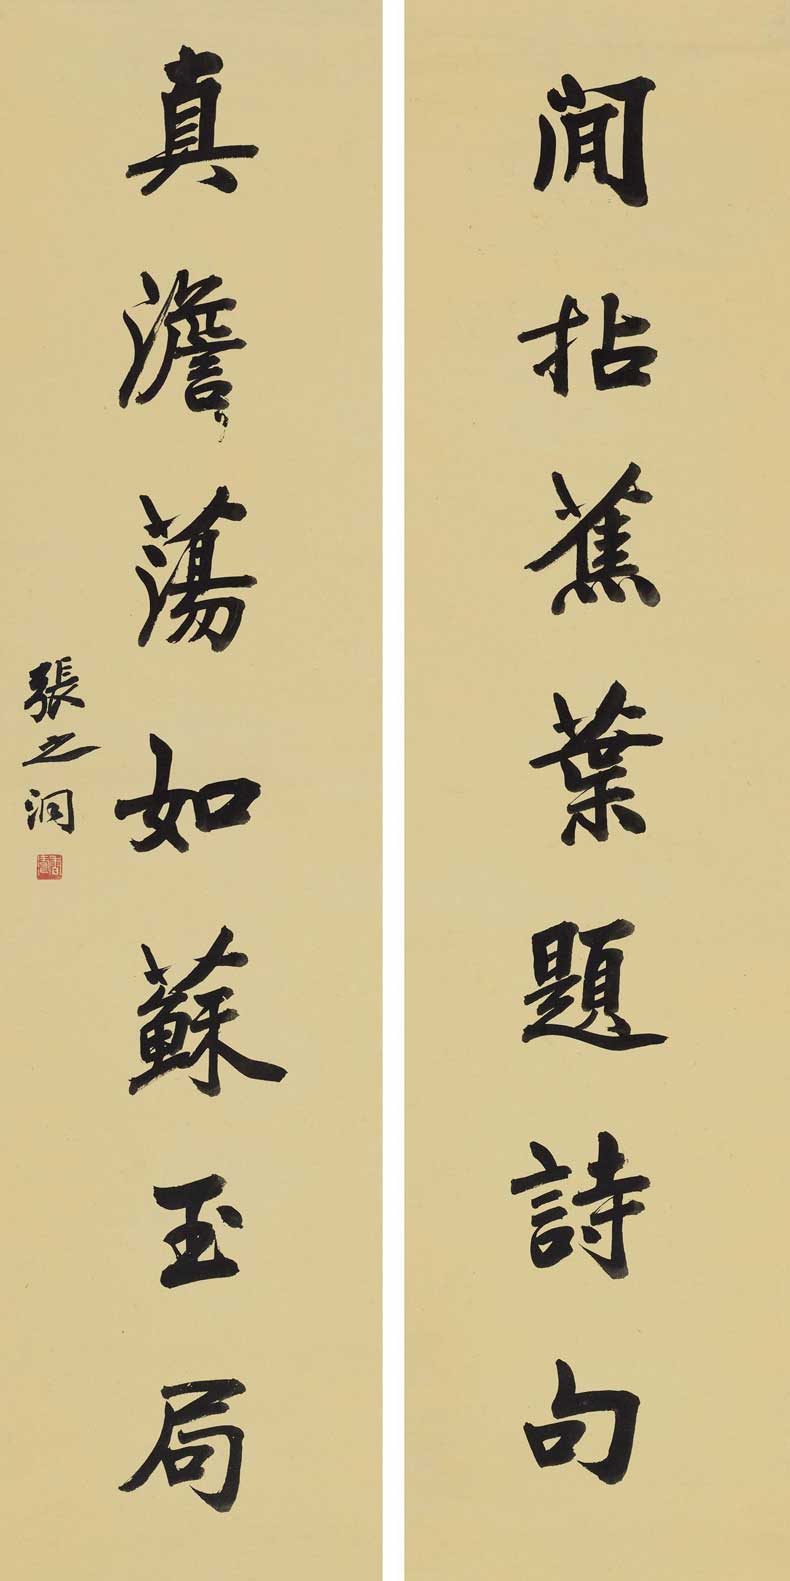 閒拈蕉葉題詩句
真澹蕩如蘇玉局
張之洞